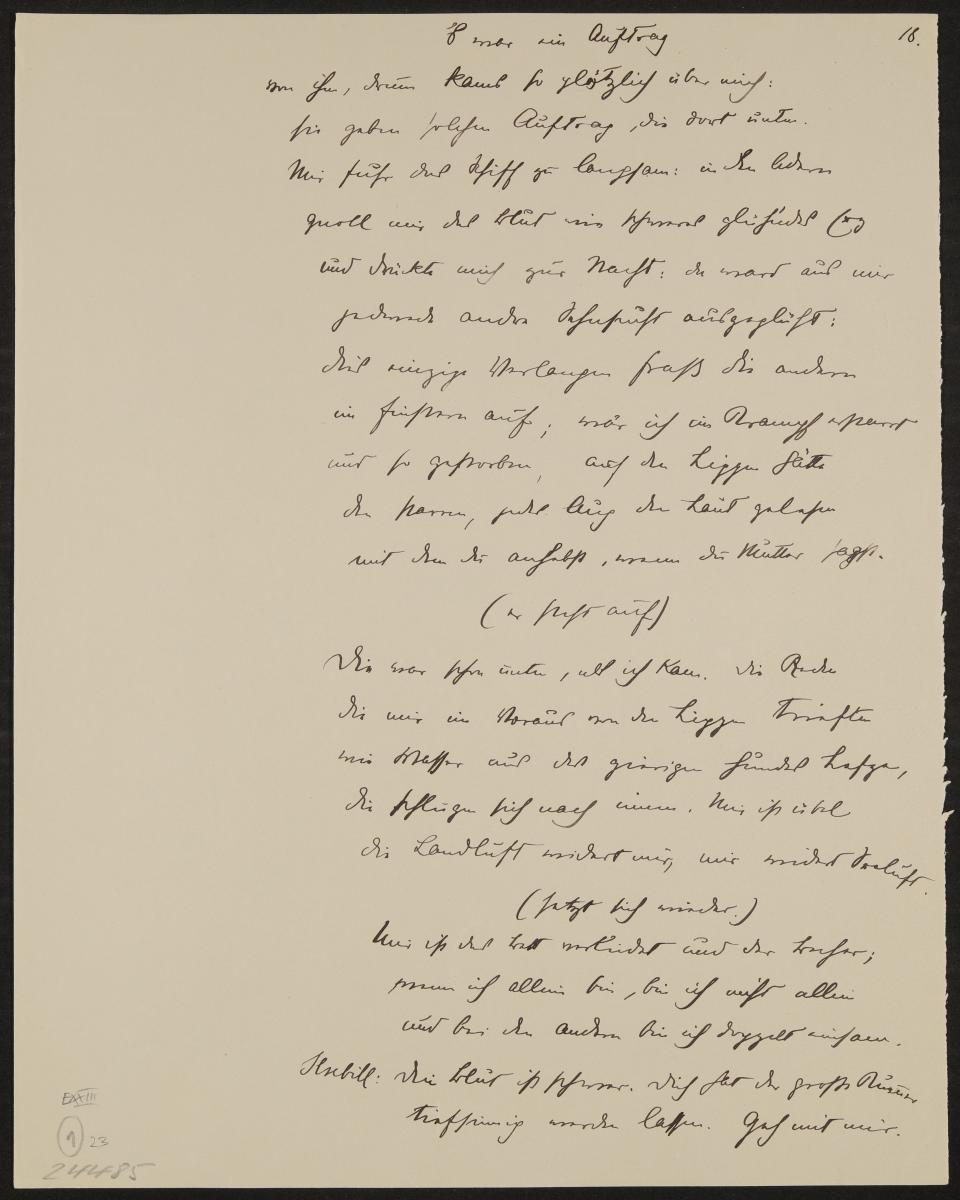 16.
's war ein Auftrag
von ihm, drum kams so plötzlich über mich:
sie gaben solchen Auftrag, die dort unten.
Mir fuhr das Schiff zu langsam: in den Adern
quoll mir das Blut wie schweres glühendes Erz
und drückte mich zur Nacht: da ward aus mir
jedwede andre Sehnsucht ausgeglüht:
dies einzige Verlangen fraß die andern
im finstern auf; wär ich im Krampf erstarrt
und so gestorben, auf den Lippen hätte
den starren, jedes Aug den Laut gelesen
mit dem du anhebst, wenn du Mutter sagst.
(er steht auf)
Die war schon unten, als ich kam. Die Reden
die mir im Voraus von den Lippen trieften
wie Wasser aus des gierigen Hundes Lefzen,
die schlugen sich nach innen. Mir ist übel
die Landluft widert mir, mir widert Seeluft.
(setzt sich wieder.)
Mir ist das Bett verleidet und der Becher;
wenn ich allein bin, bin ich nicht allein
und bei den andern bin ich doppelt einsam.
Ilsebill: Dein Blut ist schwer. Dich hat der große
tiefsinnig werden lassen. Geh mit mir.
EXXIII
1 23
24485